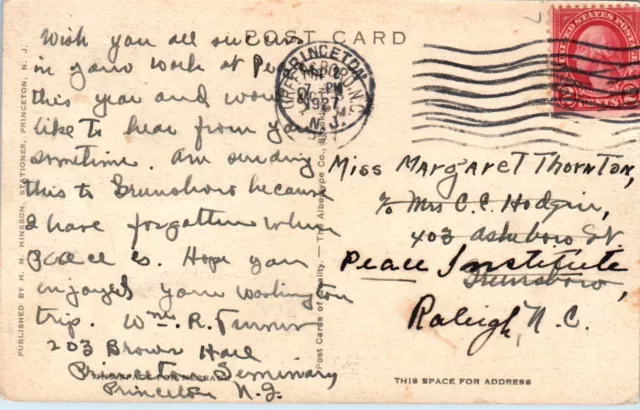 POST CARD
Wish you all success
in your work at Peace
this year and would
like to hear from you
sometime. Am sending
this to Greensboro because
I have forgotten where
Peace is. Hope you
enjoyed your Washington
trip. Wm. R.
203 Brown Hall
Princeton Seminary
Princeton N.J.
PUBLISHED BY H. M. HINKSON, STATIONER, PRINCETON, N. J.
Post Cards of Quality. — The Albertype Co.,
PRINCETON
1927
N.J.
UNITED STATES POSTAGE
2 CENTS 2
Miss Margaret Thornton,
c/o Mrs C.C. Hodgin,
403 Asheboro St
Peace Institute
Greensboro,
Raleigh, N.C.
THIS SPACE FOR ADDRESS